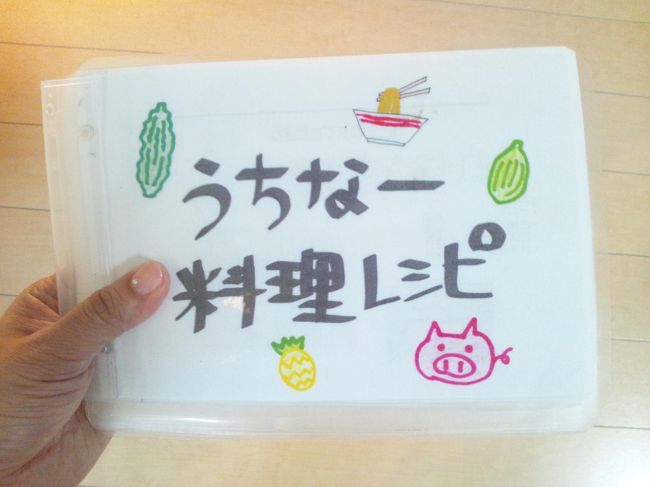 うちなー
料理レシピ